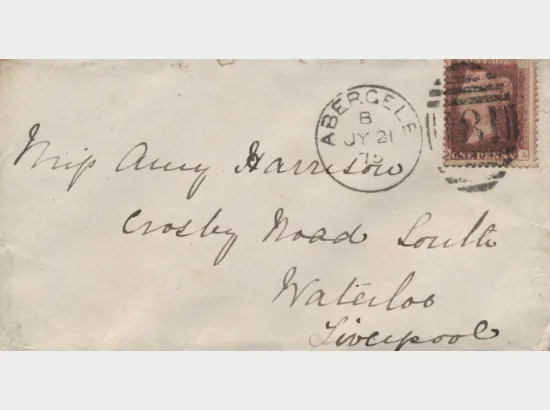 ABERGELE
B
JY 21
75
ONE PENNY
A
Miss Amy Harrison
Crosby Road South
Waterloo
Liverpool